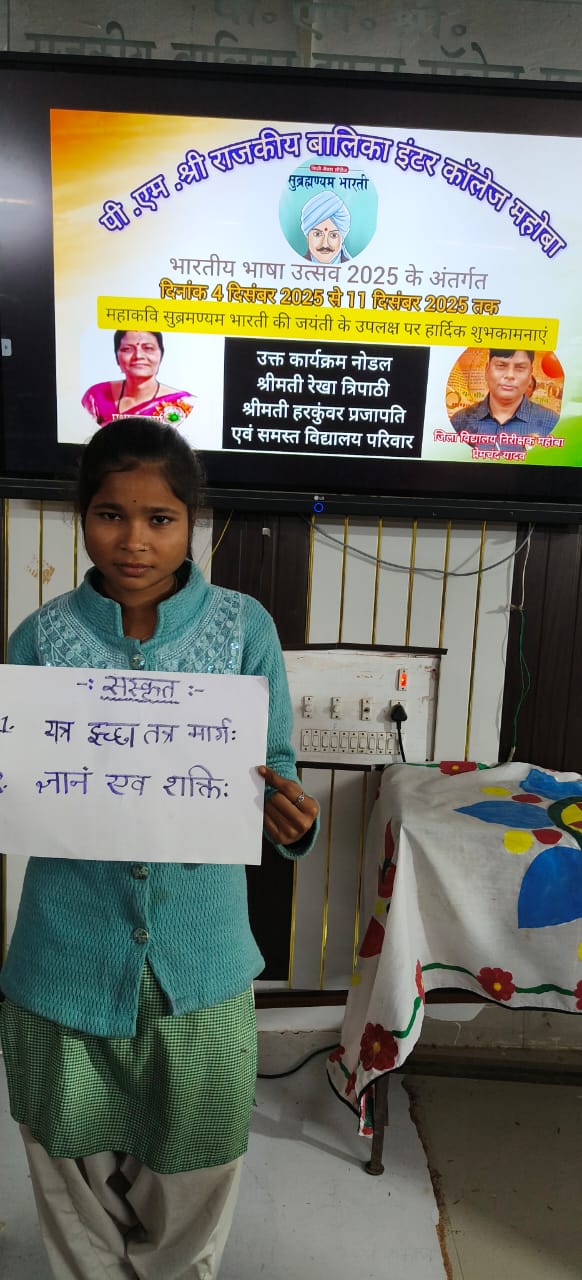 पी० एम० श्री०
राजकीय बालिका इण्टर कॉलेज
पी .एम .श्री राजकीय बालिका इंटर कॉलेज महोबा
सुब्रह्मण्यम भारती
भारतीय भाषा उत्सव 2025 के अंतर्गत
दिनांक 4 दिसंबर 2025 से 11 दिसंबर 2025 तक
महाकवि सुब्रमण्यम भारती की जयंती के उपलक्ष पर हार्दिक शुभकामनाएं
उक्त कार्यक्रम नोडल
श्रीमती रेखा त्रिपाठी
श्रीमती हरकुंवर प्रजापति
एवं समस्त विद्यालय परिवार
जिला विद्यालय निरीक्षक महोबा
प्रेमचंद यादव
LG
-: संस्कृत :-
1. यत्र इच्छा तत्र मार्गः
2. ज्ञानं एव शक्तिः